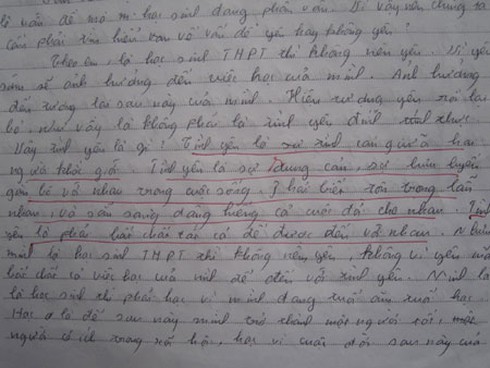 là vấn đề mà mà học sinh đang phân vân. Vì vậy nên chúng ta
cần phải tìm hiểu xem về vấn đề yêu hay không yêu?
Theo em, là học sinh THPT thì không nên yêu. Vì yêu
sớm sẽ ảnh hưởng đến việc học của mình. Ảnh hưởng
đến tương lai sau này của mình. Hiện tượng yêu rồi lại
bỏ, như vậy là không phải là tình yêu đính thực.
Vậy tình yêu là gì? Tình yêu là sự tình cảm giữa hai
người khác giới. Tình yêu là sự dung cảm, sự luôn luyến
gắn bó với nhau trong cuộc sống. Phải biết tôn trọng lẫn
nhau, và sẵn sàng dâng hiến cả cuộc đời cho nhau. Tình
yêu là phải bất chấp tất cả để được đến với nhau. Nhưng
mình là học sinh THPT thì không nên yêu, không vì yêu mà
bất chấp cả việc học của mình để đến với tình yêu. Mình là
là học sinh thì phải học vì mình đang tuổi ăn tuổi học.
Học là để sau này mình trở thành một người tốt, một
người có ích trong xã hội, học vì cuộc đời sau này của